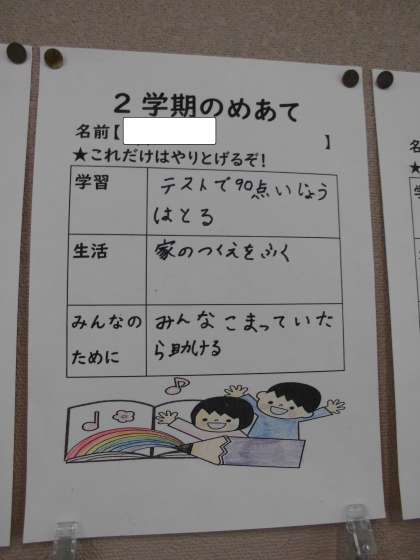 2学期のめあて
名前【 】
★これだけはやりとげるぞ!
学習
テストで90点いじょう
はとる
生活
家のつくえをふく
みんなの
ために
みんなこまっていた
ら助ける